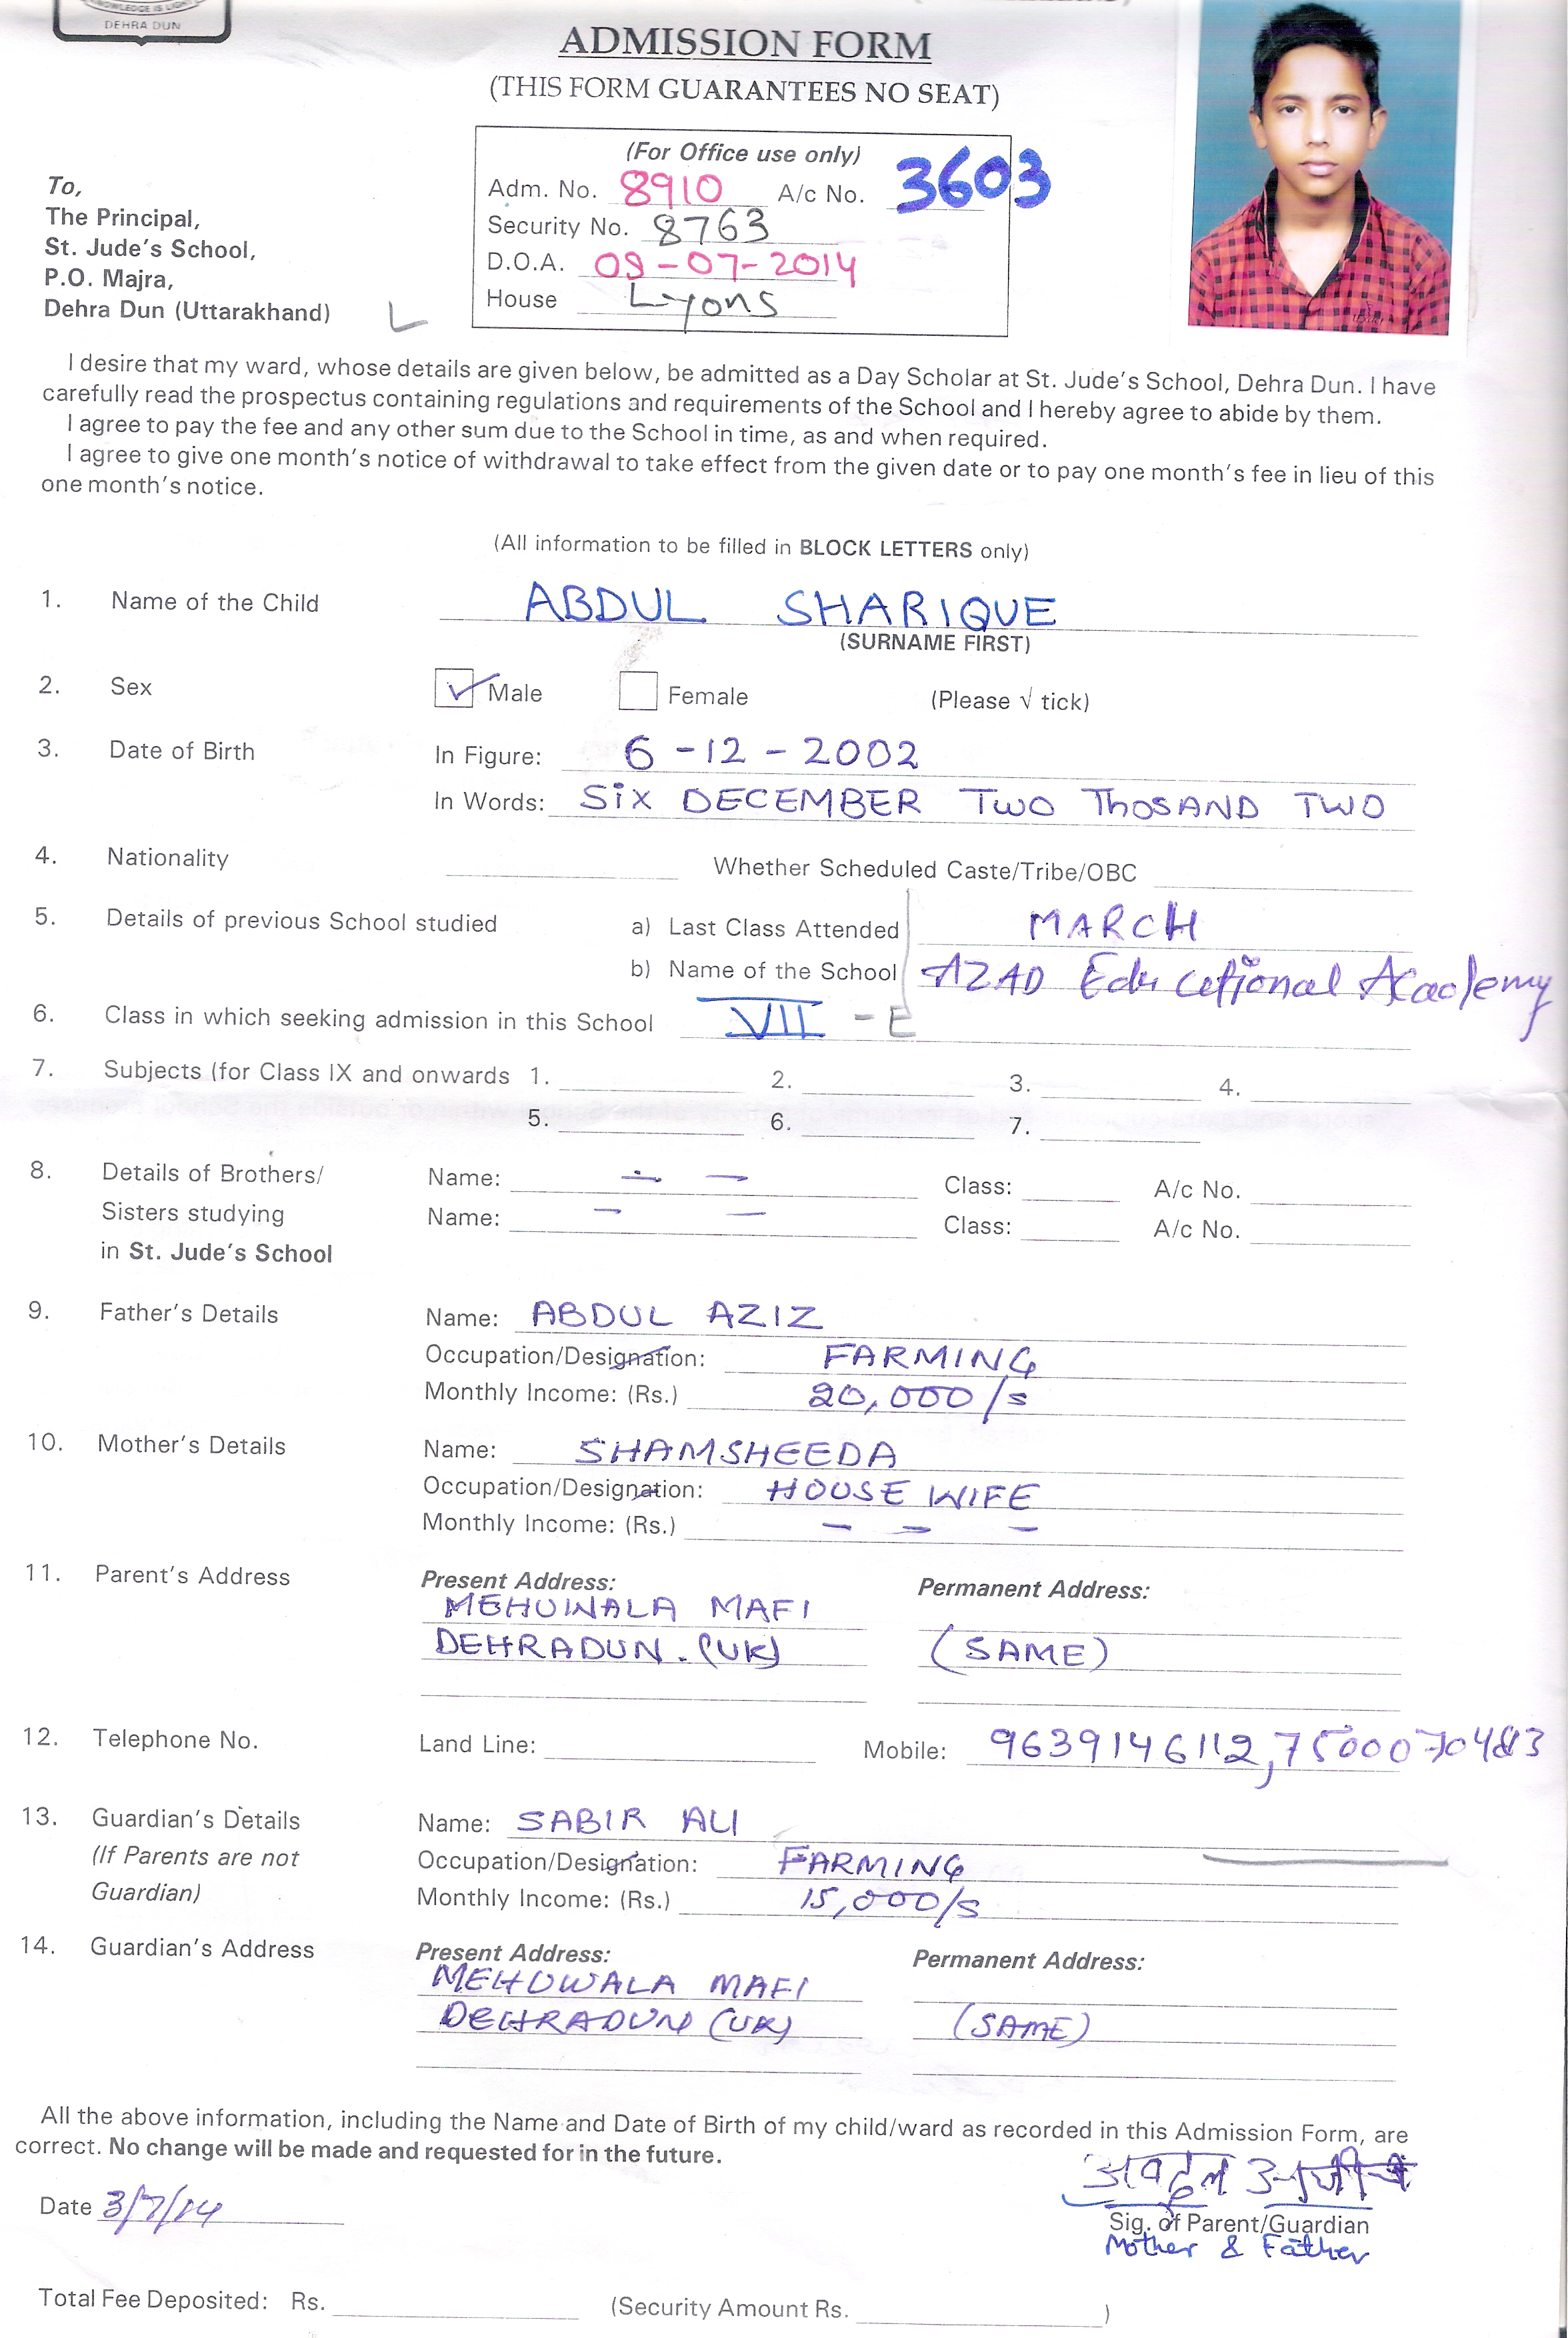 KNOWLEDGE IS LIGHT
DEHRA DUN
ADMISSION FORM
(THIS FORM GUARANTEES NO SEAT)
(For Office use only)
Adm. No. 8910 A/c No. 3603
Security No. 8763
D.O.A. 09-07-2014
House Lyons
To,
The Principal,
St. Jude's School,
P.O. Majra,
Dehra Dun (Uttarakhand)
I desire that my ward, whose details are given below, be admitted as a Day Scholar at St. Jude's School, Dehra Dun. I have
carefully read the prospectus containing regulations and requirements of the School and I hereby agree to abide by them.
I agree to pay the fee and any other sum due to the School in time, as and when required.
I agree to give one month's notice of withdrawal to take effect from the given date or to pay one month's fee in lieu of this
one month's notice.
(All information to be filled in BLOCK LETTERS only)
1. Name of the Child ABDUL SHARIQUE
(SURNAME FIRST)
2. Sex Male Female (Please √ tick)
3. Date of Birth In Figure: 6-12-2002
In Words: SIX DECEMBER TWO THOSAND TWO
4. Nationality Whether Scheduled Caste/Tribe/OBC
5. Details of previous School studied a) Last Class Attended MARCH
b) Name of the School AZAD Educational Academy
6. Class in which seeking admission in this School VII - E
7. Subjects (for Class IX and onwards 1. 2. 3. 4.
5. 6. 7.
8. Details of Brothers/ Name: - - Class: A/c No.
Sisters studying Name: - - Class: A/c No.
in St. Jude's School
9. Father's Details Name: ABDUL AZIZ
Occupation/Designation: FARMING
Monthly Income: (Rs.) 20,000/s
10. Mother's Details Name: SHAMSHEEDA
Occupation/Designation: HOUSE WIFE
Monthly Income: (Rs.) - - -
11. Parent's Address Present Address: Permanent Address:
MEHUWALA MAFI
DEHRADUN. (UK) (SAME)
12. Telephone No. Land Line: Mobile: 9639146112,
13. Guardian's Details Name: SABIR ALI
(If Parents are not Occupation/Designation: FARMING
Guardian) Monthly Income: (Rs.) 15,000/s
14. Guardian's Address Present Address: Permanent Address:
MEHUWALA MAFI
DEHRADUN (UK) (SAME)
All the above information, including the Name and Date of Birth of my child/ward as recorded in this Admission Form, are
correct. No change will be made and requested for in the future.
Date 3/7/14
Sig. of Parent/Guardian
Mother & Father
Total Fee Deposited: Rs. (Security Amount Rs. )